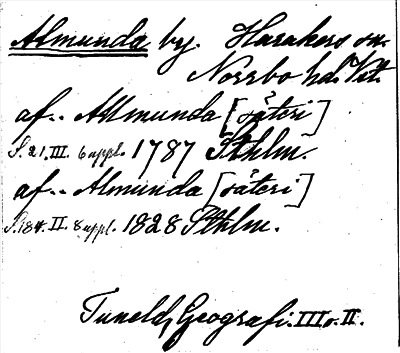 Almunda by. Harakers sn.
Norrbo hd. Vstm.
af.. Allmunda [säteri]
S. 21. III. 6 uppl. 1787 Sthlm.
af.. Almunda [säteri]
S. 184. II. 8 uppl. 1828 Sthlm.
Tuneld, Geografi. III o. II.